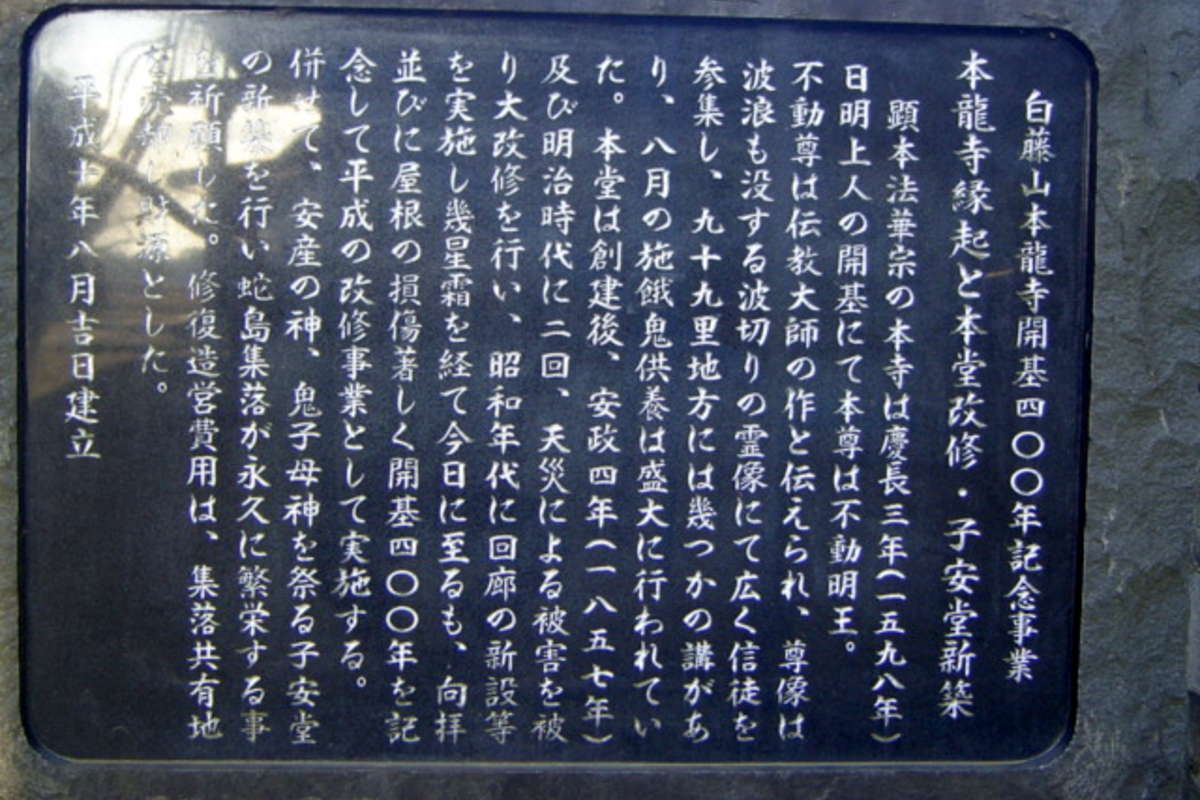 白藤山本龍寺開基四〇〇年記念事業
本龍寺縁起と本堂改修・子安堂新築
顕本法華宗の本寺は慶長三年(一五九八年)
日明上人の開基にて本尊は不動明王。
不動尊は伝教大師の作と伝えられ、尊像は
波浪も没する波切りの霊像にて広く信徒を
参集し、九十九里地方には幾つかの講があ
り、八月の施餓鬼供養は盛大に行われてい
た。本堂は創建後、安政四年(一八五七年)
及び明治時代に二回、天災による被害を被
り大改修を行い、昭和年代に回廊の新設等
を実施し幾星霜を経て今日に至るも、向拝
並びに屋根の損傷著しく開基四〇〇年を記
念して平成の改修事業として実施する。
併せて、安産の神、鬼子母神を祭る子安堂
の新築を行い蛇島集落が永久に繁栄する事
を祈願した。修復造営費用は、集落共有地
を売却し財源とした。
平成十年八月吉日建立